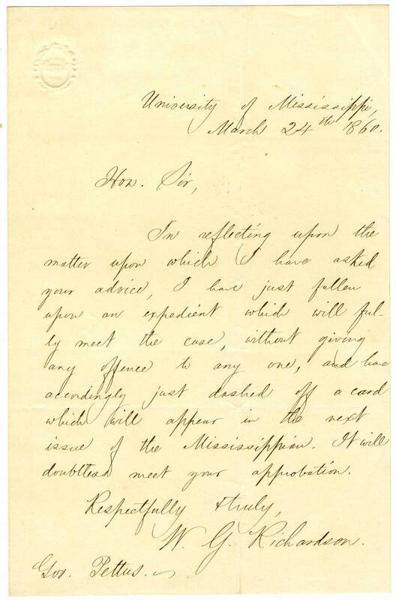 University of Mississippi,
March 24th 1860.
Hon. Sir,
In reflecting upon the
matter upon which I have asked
your advice, I have just fallen
upon an expedient which will ful-
ly meet the case, without giving
any offence to any one, and have
accordingly just dashed off a card
which will appear in the next
issue of the Mississippian. It will
doubtless meet your approbation.
Respectfully & truly,
W. G. Richardson.
Gov. Pettus.